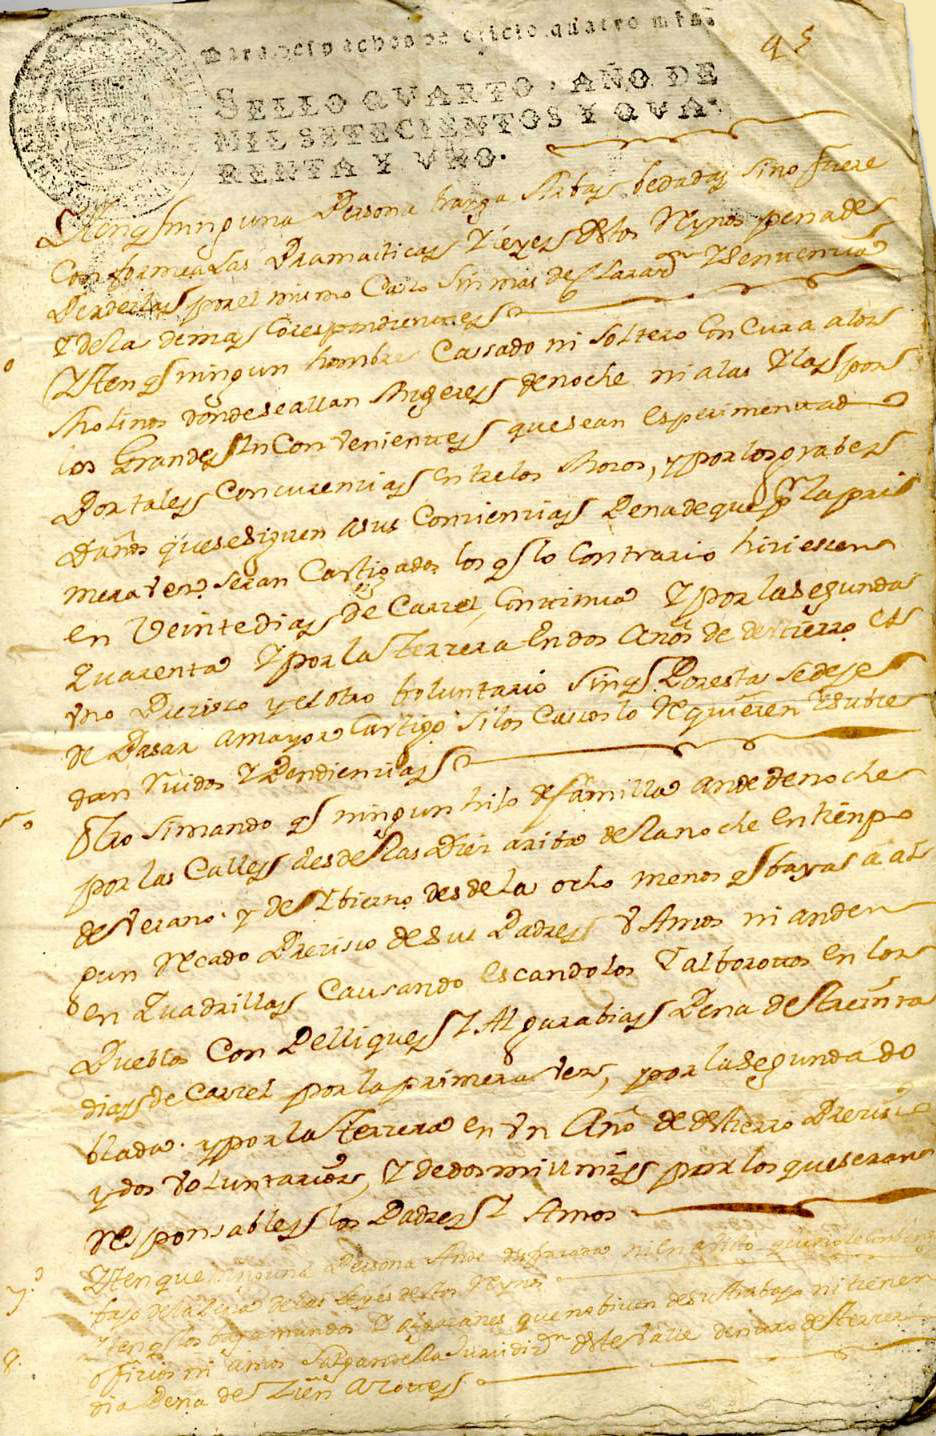 95
Para despachos de oficio quatro mrs.
SELLO QVARTO, AÑO DE
MIL SETECIENTOS Y QVA-
RENTA Y VNO.
Yten qe ninguna Persona traiga Armas bedadas sino fuere
Conforme a las Pramaticas Y leyes destos Reynos pena de
Perderlas por el mismo Caso sin mas declarazn Y Sentencia
Y de las demas Correspondientes
Yten qe ningun hombre Cassado ni soltero Concura a los
Molinos donde se allan Mugeres de noche ni a las por
los Grandes Inconvenientes que se an Esperimentado
Por tales Concurencias Entre los Mozos, y por los grabes
daños que se siguen a sus Conciencias Pena de que pr la pri
mera vez seran Castigados los qe lo Contrario hiciesen
en Veinte dias de Carzel Continua Y por la Segunda
Quarenta Y por la Terzera En dos Años de destierro el
vno Preciso y el otro boluntario sin qe Por esto se deje
de Pasar a mayor Castigo si los Casos lo Requieren Y subie
dan Ruidos Y Pendiencias
Otro si mando qe ningun hijo de familia ande de noche
por las Calles desde las diez ariba de la noche En tienpo
de verano y de Ybierno desde la ocho menos qe baya a al
gun Recado Preciso de sus Padres v Amos ni anden
en Quadrillas Causando Escandolos Y alborotos En los
Pueblos Con Pelliques Y Algarabias Pena de Treinta
dias de Carzel por la primera vez, y por la Segunda do
blada y por la Terzera en vn Año de destierro Preciso
y dos voluntarios, Y de dos mill mrs por los que seran
Responsables los Padres Y Amos
7. Yten que ninguna Persona Ande
bajo de la Pena de las leyes destos Reynos
8. Yten qe los bagamundos Y que no biven de su trabajo ni tienen
oficios ni amos Salgan de la Jurisdizn deste Valle dentro de Terzer
dia Pena de Zien Azotes